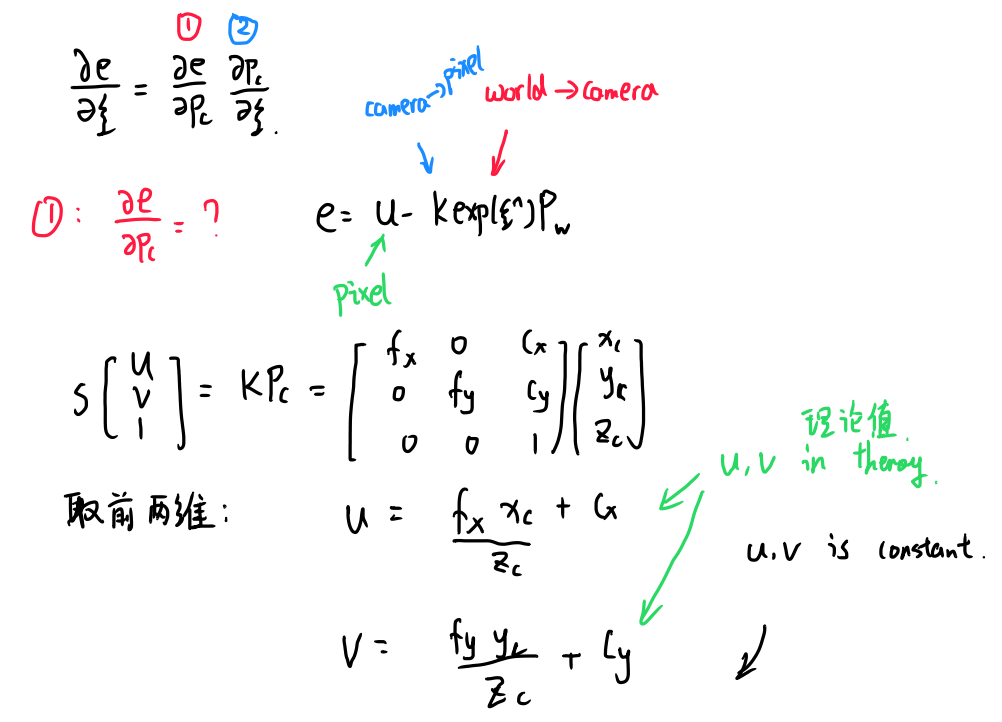 ① ②
∂e/∂ξ = ∂e/∂Pc ∂Pc/∂ξ.
camera→pixel world→camera
①: ∂e/∂Pc = ? e = u - K exp(ξ^)Pw
pixel
s [u v 1] = KPc = [fx 0 cx; 0 fy cy; 0 0 1] [xc yc zc]
理论值.
u,v in theroy.
取前两维: u = fx xc / zc + cx
u,v is constant.
v = fy yc / zc + cy